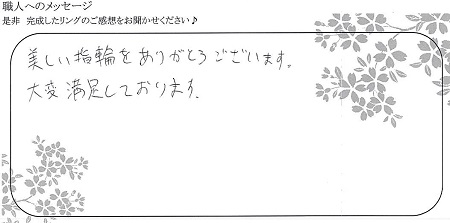 職人へのメッセージ
是非 完成したリングのご感想をお聞かせください♪
美しい指輪をありがとうございます。
大変満足しております。